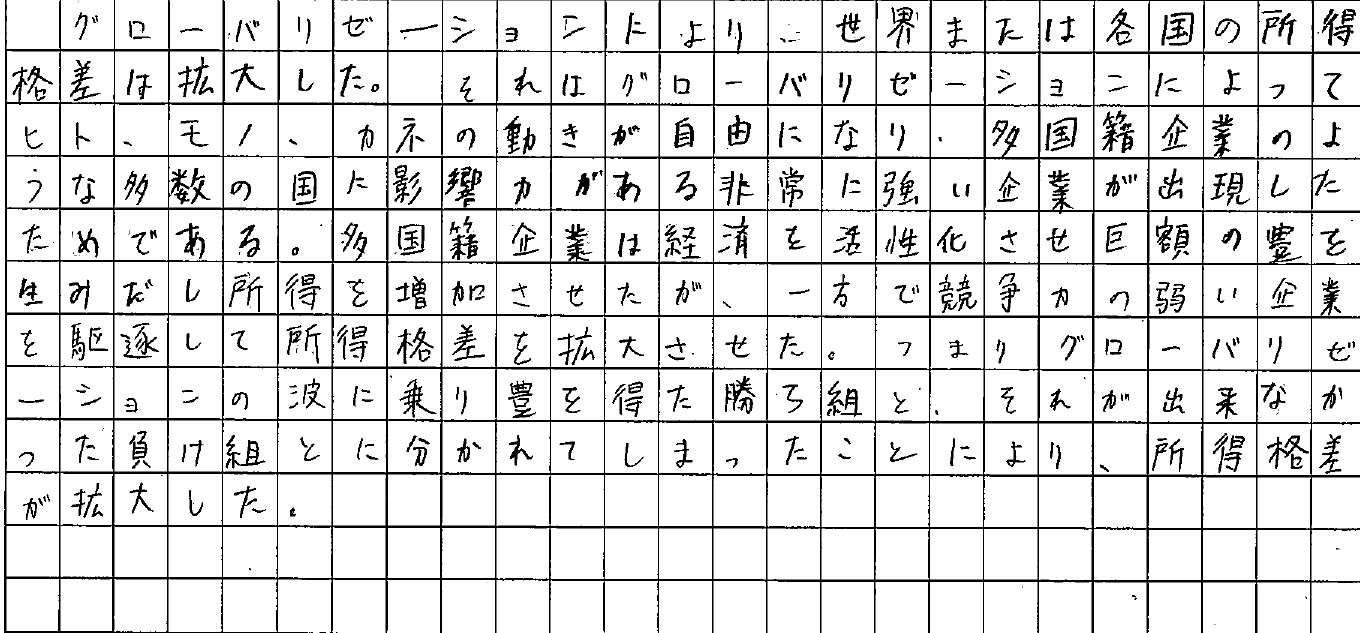 グローバリゼーションにより、世界または各国の所得
格差は拡大した。　それはグローバリゼーションによって
ヒト、モノ、カネの動きが自由になり、多国籍企業のよ
うな多数の国に影響力がある非常に強い企業が出現した
ためである。多国籍企業は経済を活性化させ巨額の豊を
生みだし所得を増加させたが、一方で競争力の弱い企業
を駆逐して所得格差を拡大させた。つまりグローバリゼ
ーションの波に乗り豊を得た勝ち組と、それが出来なか
った負け組とに分かれてしまったことにより、所得格差
が拡大した。